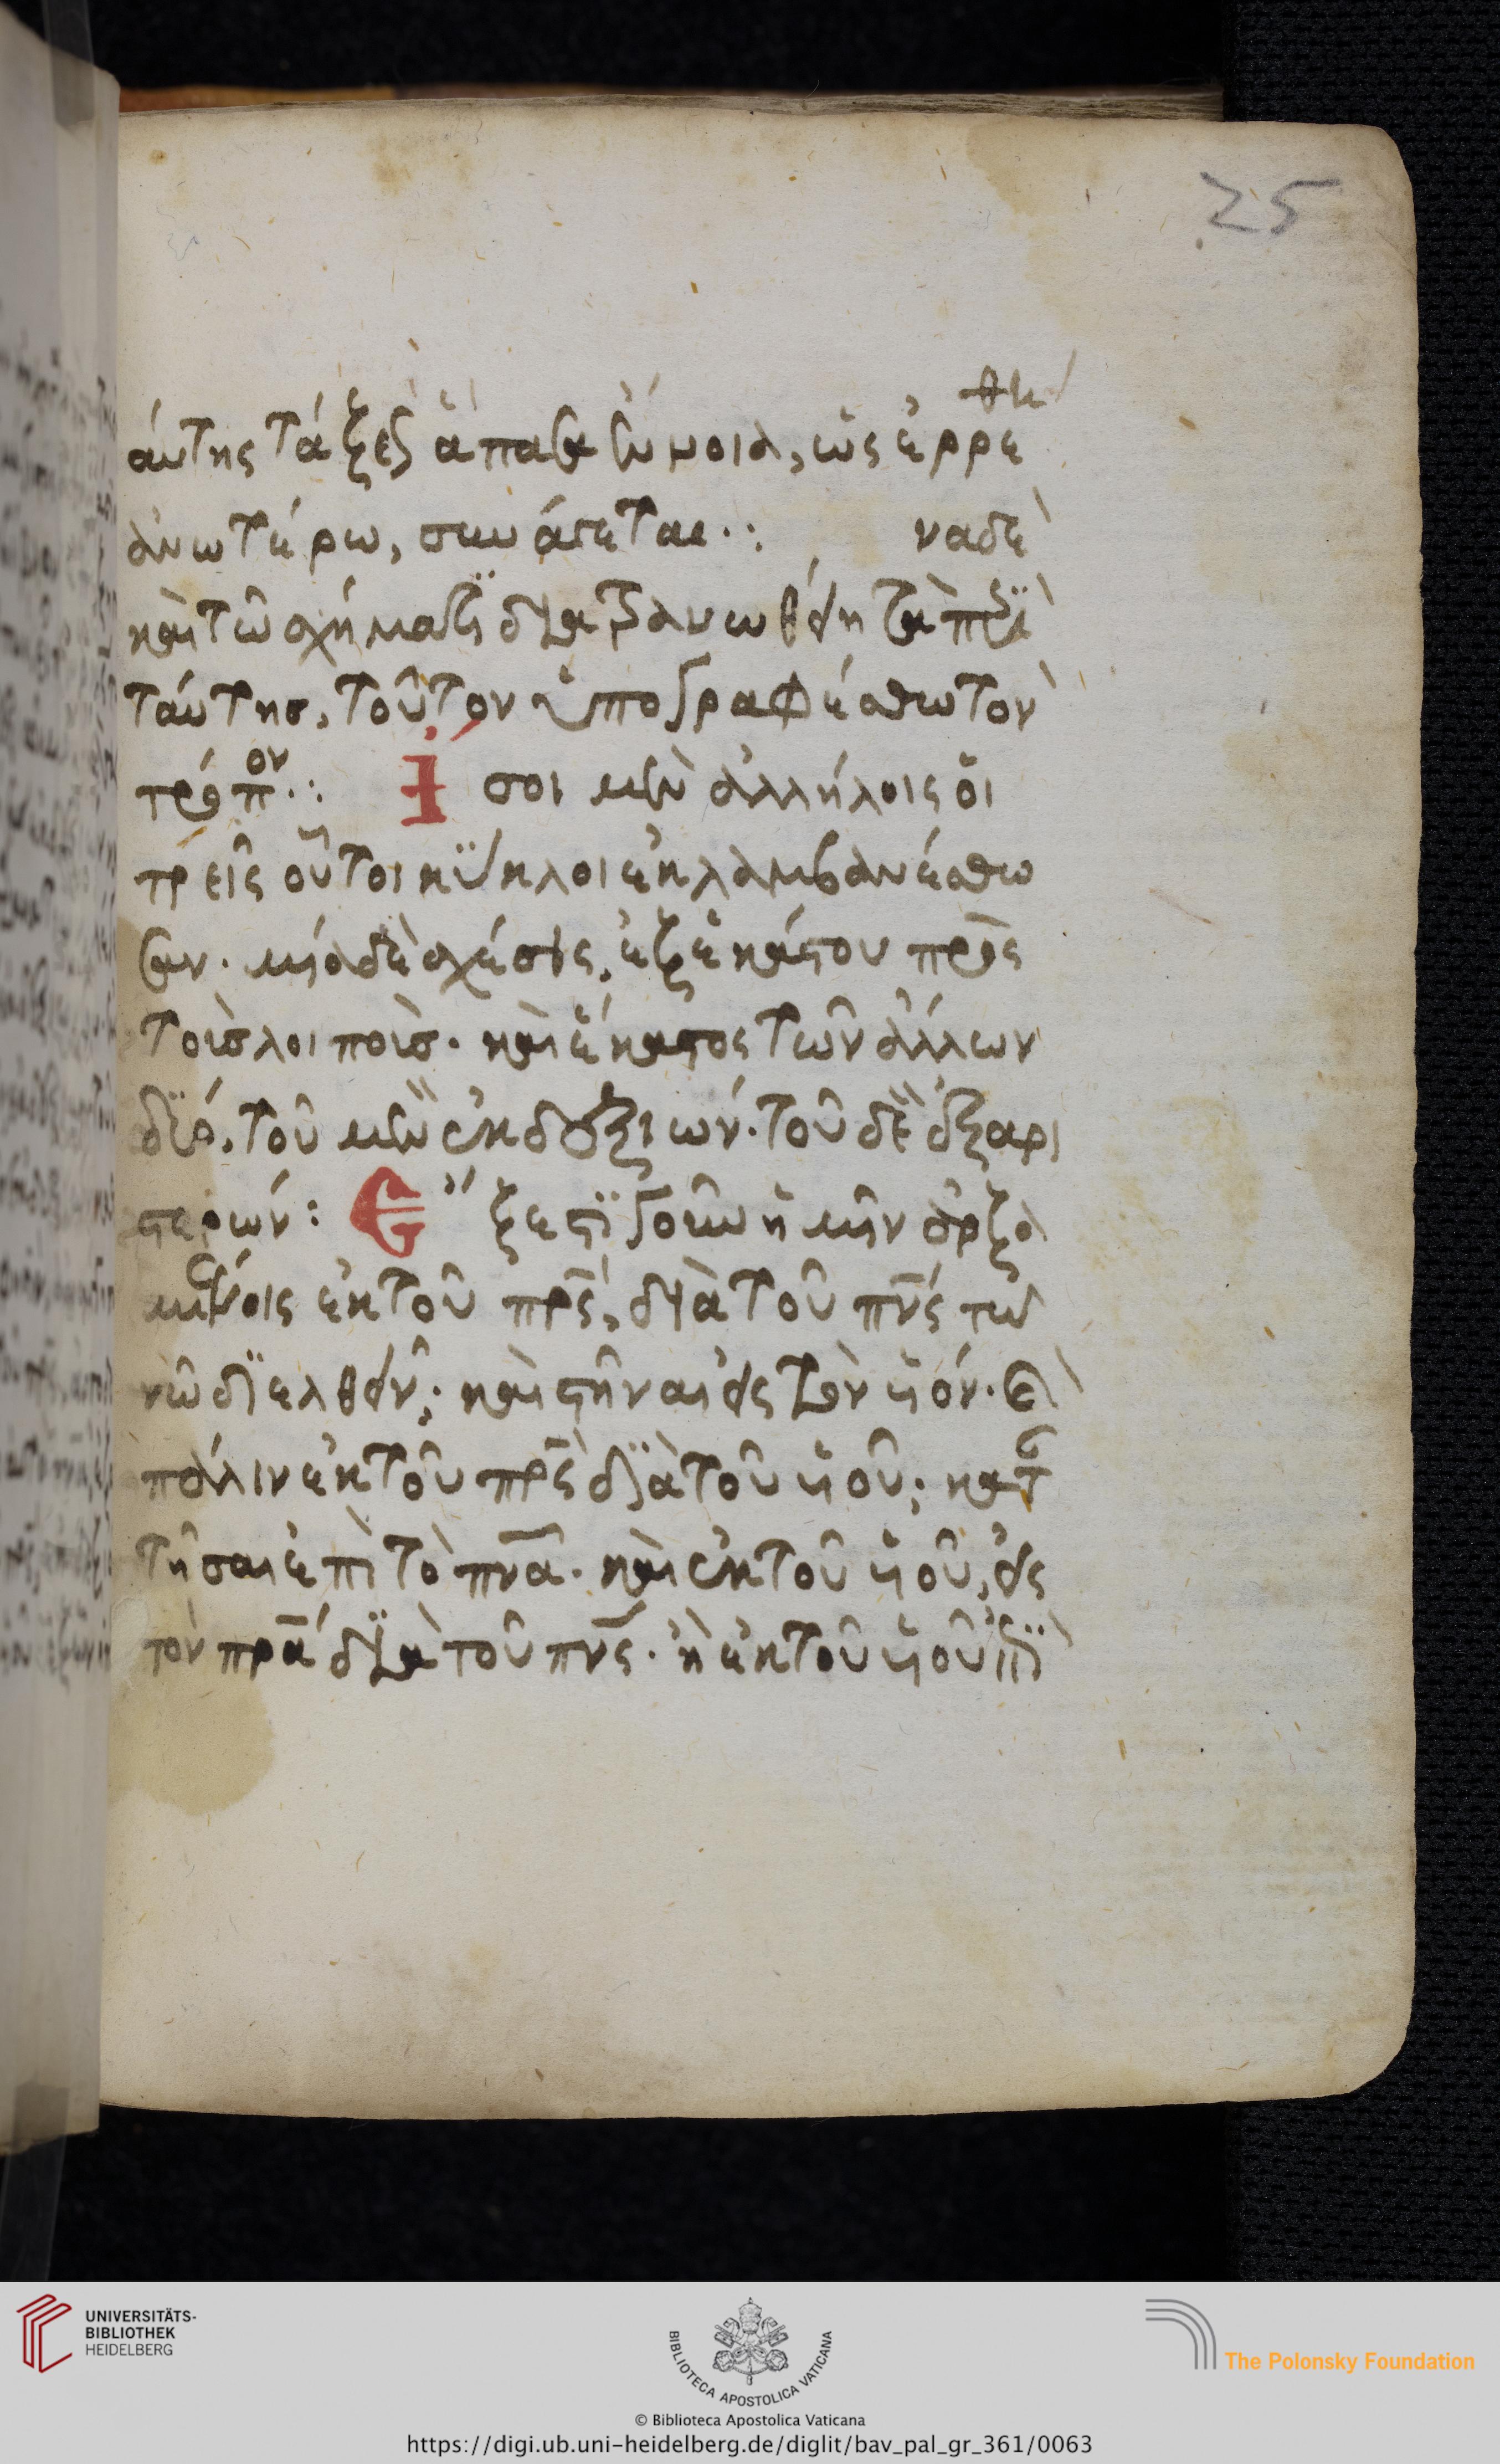 25
αὐτης τάξεις ἅπασα ὁμοία, ὡς ἐρρέθη
ἀνωτέρω, σκυάζεται·: ἵνα δὲ
καὶ τῶ σχήματϊ δϊατρανωθείη τὰ περὶ
ταύτησ, τοῦτον ὑπογραφέσθω τὸν
τρόπον·: Ἴσοι μὲν ἀλλήλοις οἱ
τρεῖς οὗτοι κΰκλοι ἐκλαμβανέσθω
σαν. μία δὲ σχέσις, ἐξ ἑκάστου πρὸς
τοὶσ λοιποὶσ. καὶ ἕκαστος τῶν ἄλλων
δϊό. τοῦ μὲν ἐκ δεξιῶν. τοῦ δὲ ἐξ αρι
στερών: Ἔξεστϊ γοῦν ἡμῖν ἀρξα
μένοις ἐκ τοῦ πρς, διὰ τοῦ πνς τῶ
νῶ διελθεῖν; καὶ στῆναι εἰς τὸν ὑόν. καὶ
πάλιν ἐκ τοῦ πρς διὰ τοῦ ὑοῦ; κατ
τῆσαι ἐπὶ τὸ πνα. καὶ ἐκ τοῦ ὑοῦ, εἰς
τὸν πρα δϊὰ τοῦ πνς. ἢ ἐκ τοῦ ὑοῦ ἐπὶ
UNIVERSITÄTS-
BIBLIOTHEK
HEIDELBERG
BIBLIOTECA APOSTOLICA VATICANA
The Polonsky Foundation
© Biblioteca Apostolica Vaticana
https://digi.ub.uni-heidelberg.de/diglit/bav_pal_gr_361/0063